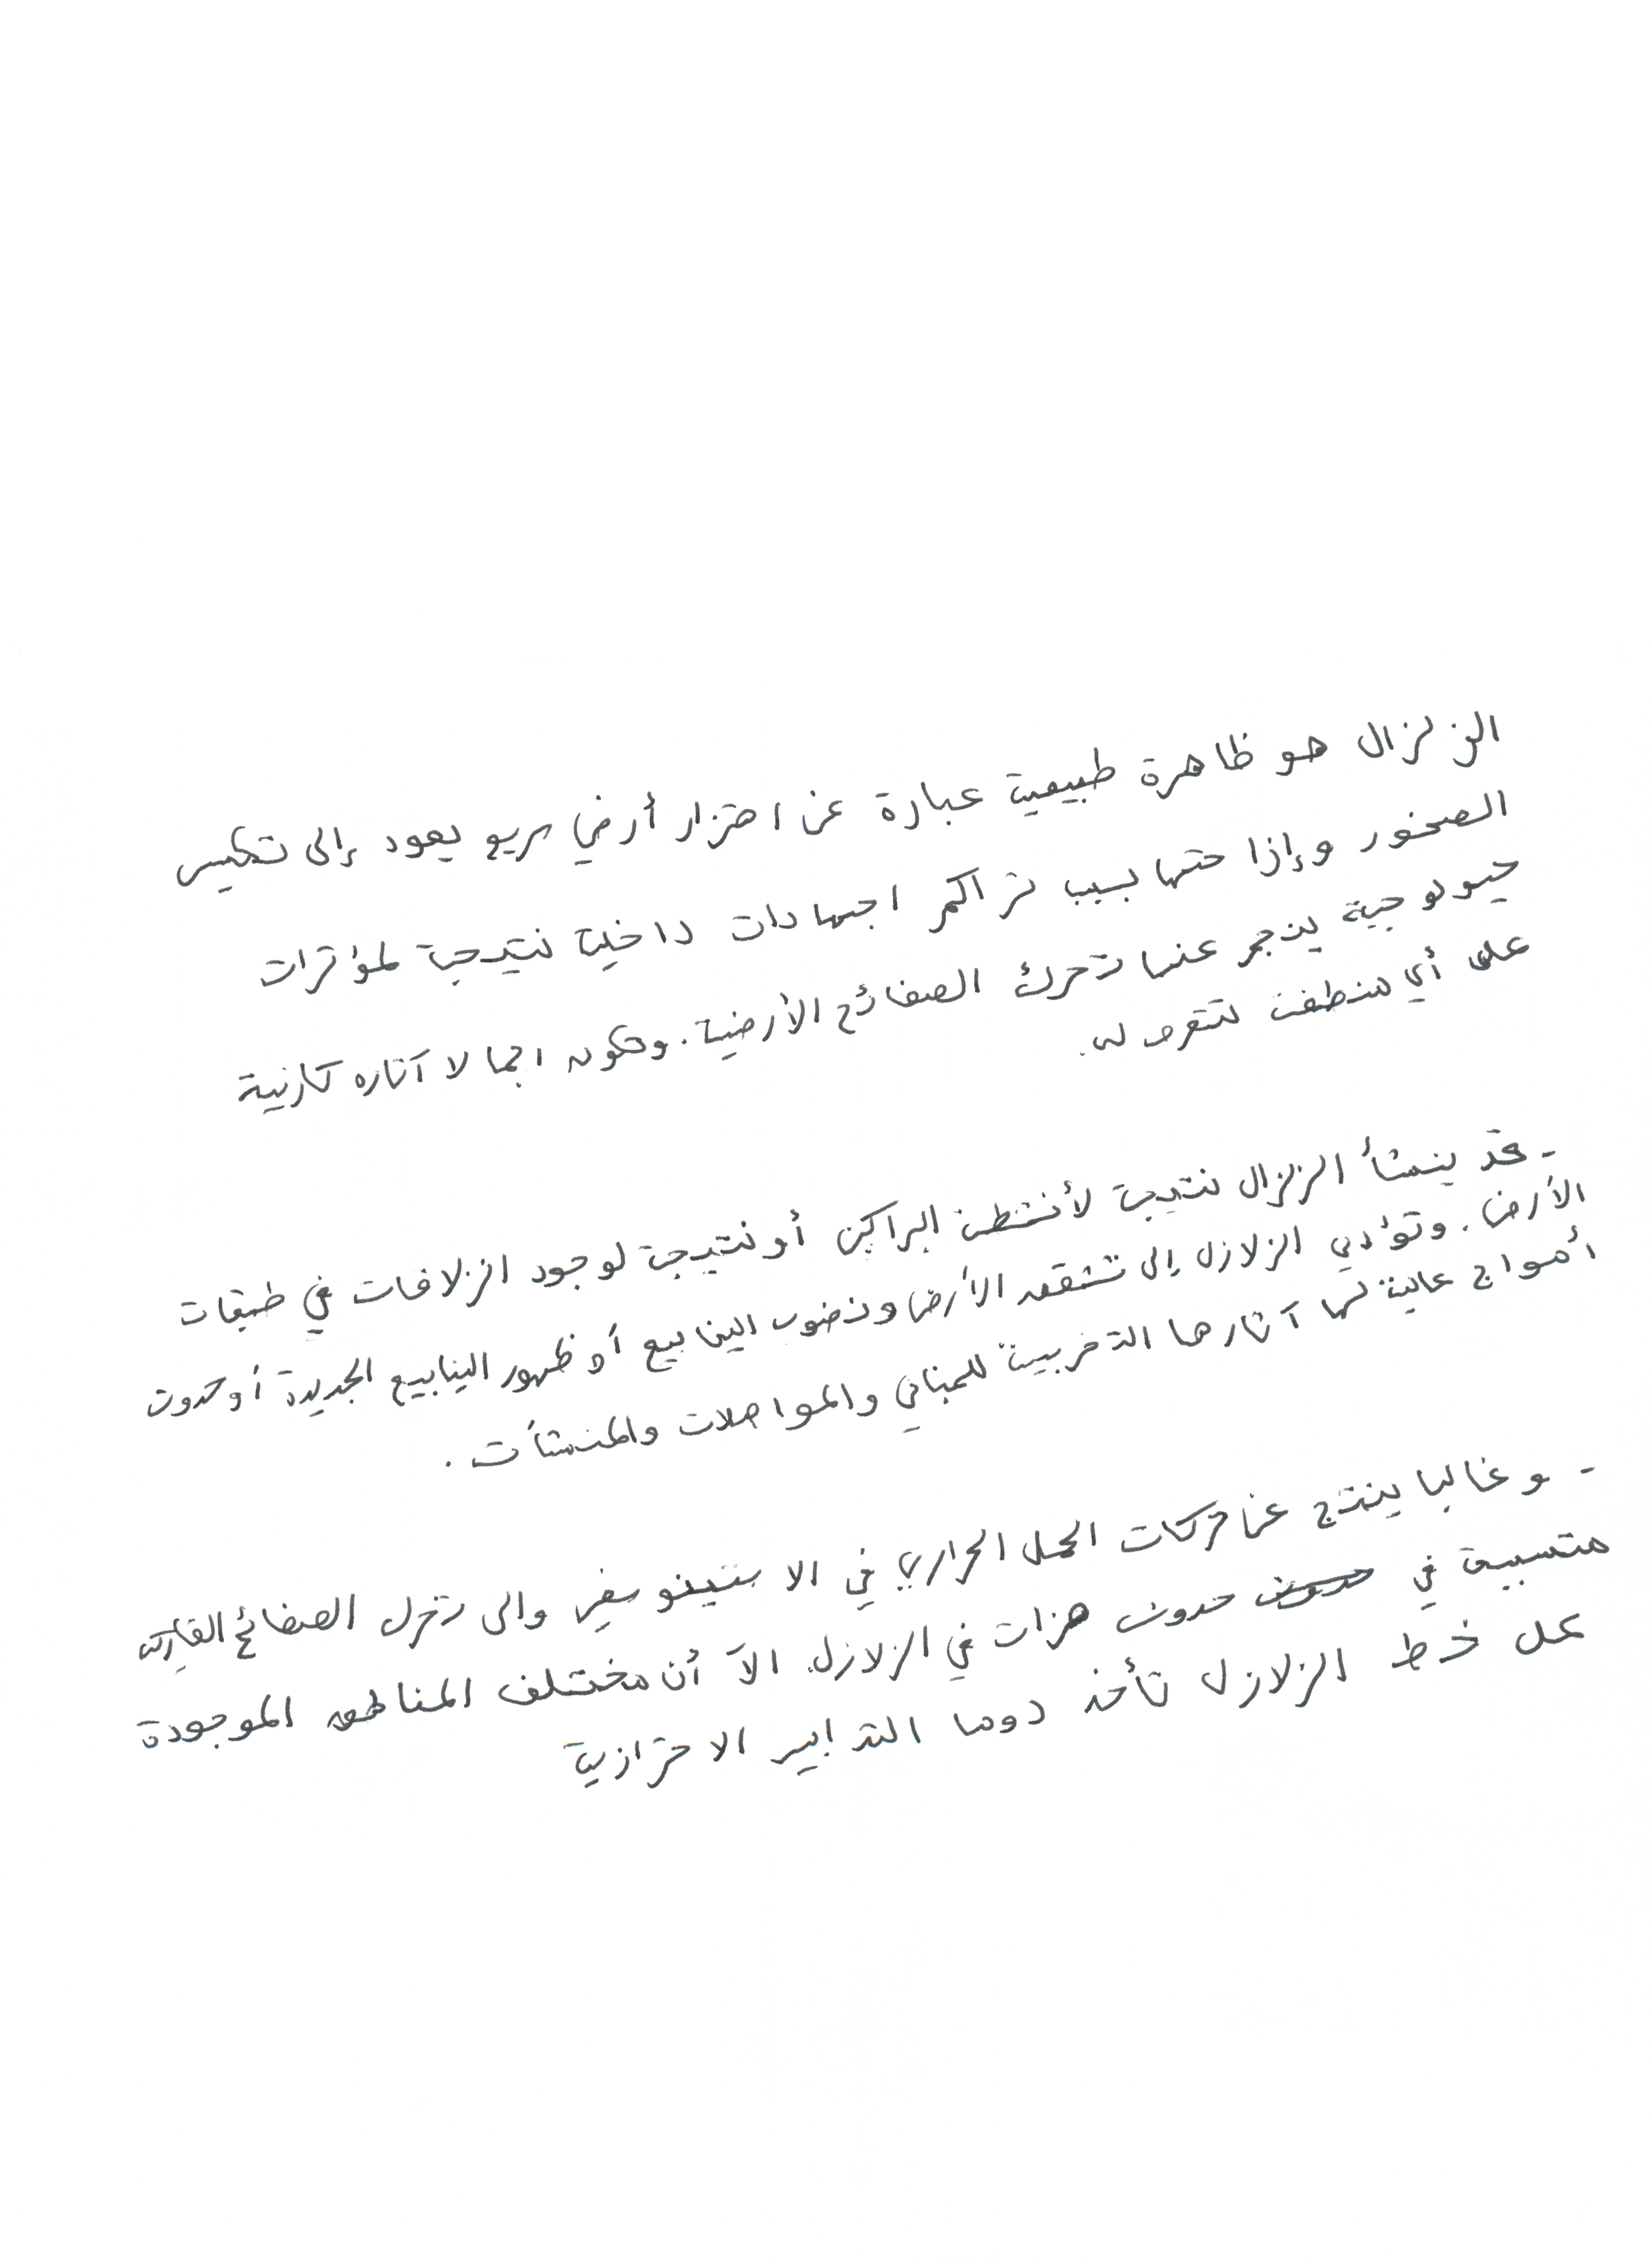 الزلزال هو ظاهرة طبيعية عبارة عن اهتزاز أرضي سريع يعود إلى تكسر
الصخور وإزاحتها بسبب تراكم اجهادات داخلية نتيجة لمؤثرات
جيولوجية ينجم عنها تحرك الصفائح الأرضية. وتكون اجمالا آثاره كارثية
على أي منطقة تتعرض له.
- قد ينشأ الزلزال نتيجة لأنشطة البراكين أو نتيجة لوجود انزلاقات في طبقات
الأرض. وتؤدي الزلازل إلى تشقق الأرض ونضوب الينابيع أو ظهور الينابيع الجديدة أو حدوث
أمواج عالية لها آثارها التخريبية للمباني والمواصلات والمنشأت.
- وغالبا ينتج عن حركات الحمل الحراري في الاستينوسفير والى تحرك الصفائح القارية
متسببة في حدوث هزات في الزلازل. الا أن مختلف المناطق الموجودة
على خط الزلازل تأخذ دوما التدابير الاحترازية